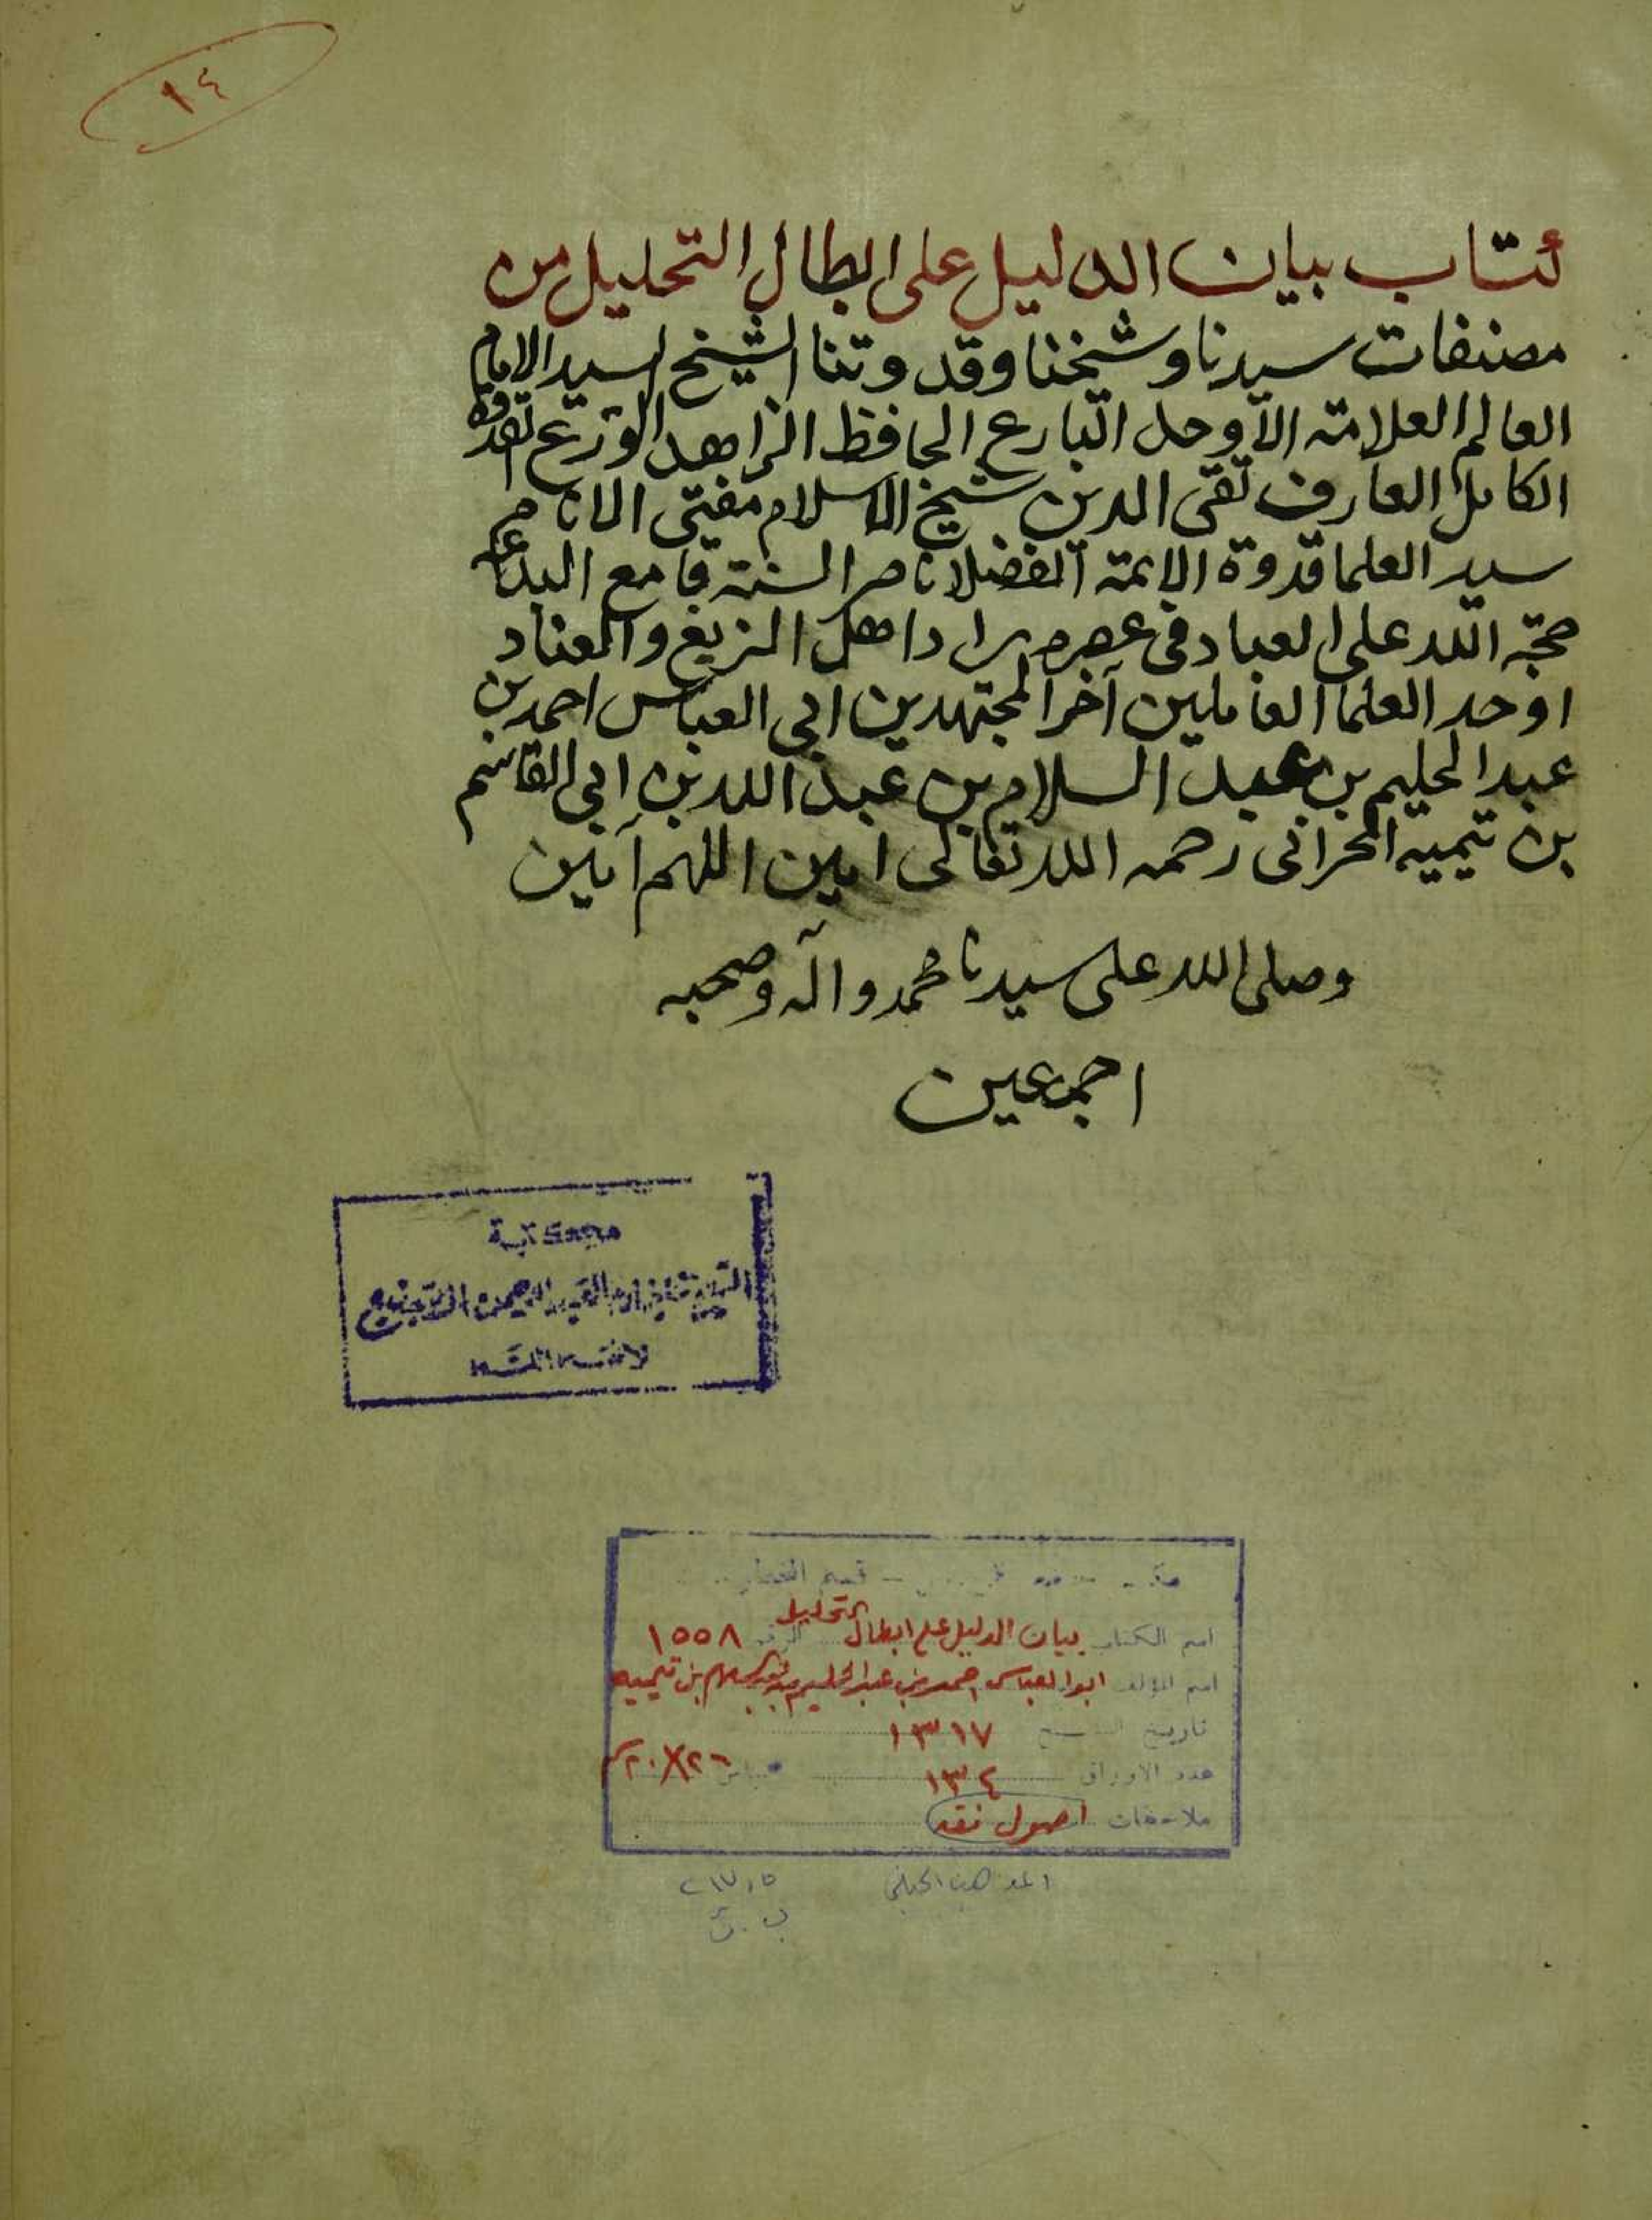 ١٤
كتاب بيان الدليل على ابطال التحليل من
مصنفات سيدنا وشيخنا وقدوتنا الشيخ السيد الامام
العالم العلامة الاوحد البارع الحافظ الزاهد الورع القدوة
الكامل العارف تقى الدين شيخ الاسلام مفتى الانام
سيد العلما قدوة الائمة الفضلا ناصر السنة قامع البدعة
حجة الله على العباد فى عصره راد اهل الزيغ والعناد
اوحد العلما العاملين آخر المجتهدين ابى العباس احمد بن
عبد الحليم بن عبد السلام بن عبد الله بن ابى القاسم
بن تيمية الحرانى رحمه الله تعالى امين اللهم آمين
وصلى الله على سيدنا محمد وآله وصحبه
اجمعين
مكتبة
قسم
اسم الكتاب بيان الدليل على ابطال التحليل الرقم ١٥٥٨
اسم المؤلف ابو العباس احمد بن عبد الحليم بن عبد السلام بن تيمية
تاريخ النسخ ١٣١٧
عدد الاوراق ١٣٤ ٢٠×٢٦
ملاحظات اصول نقد
المذهب الحنبلي ٢١٧,٥